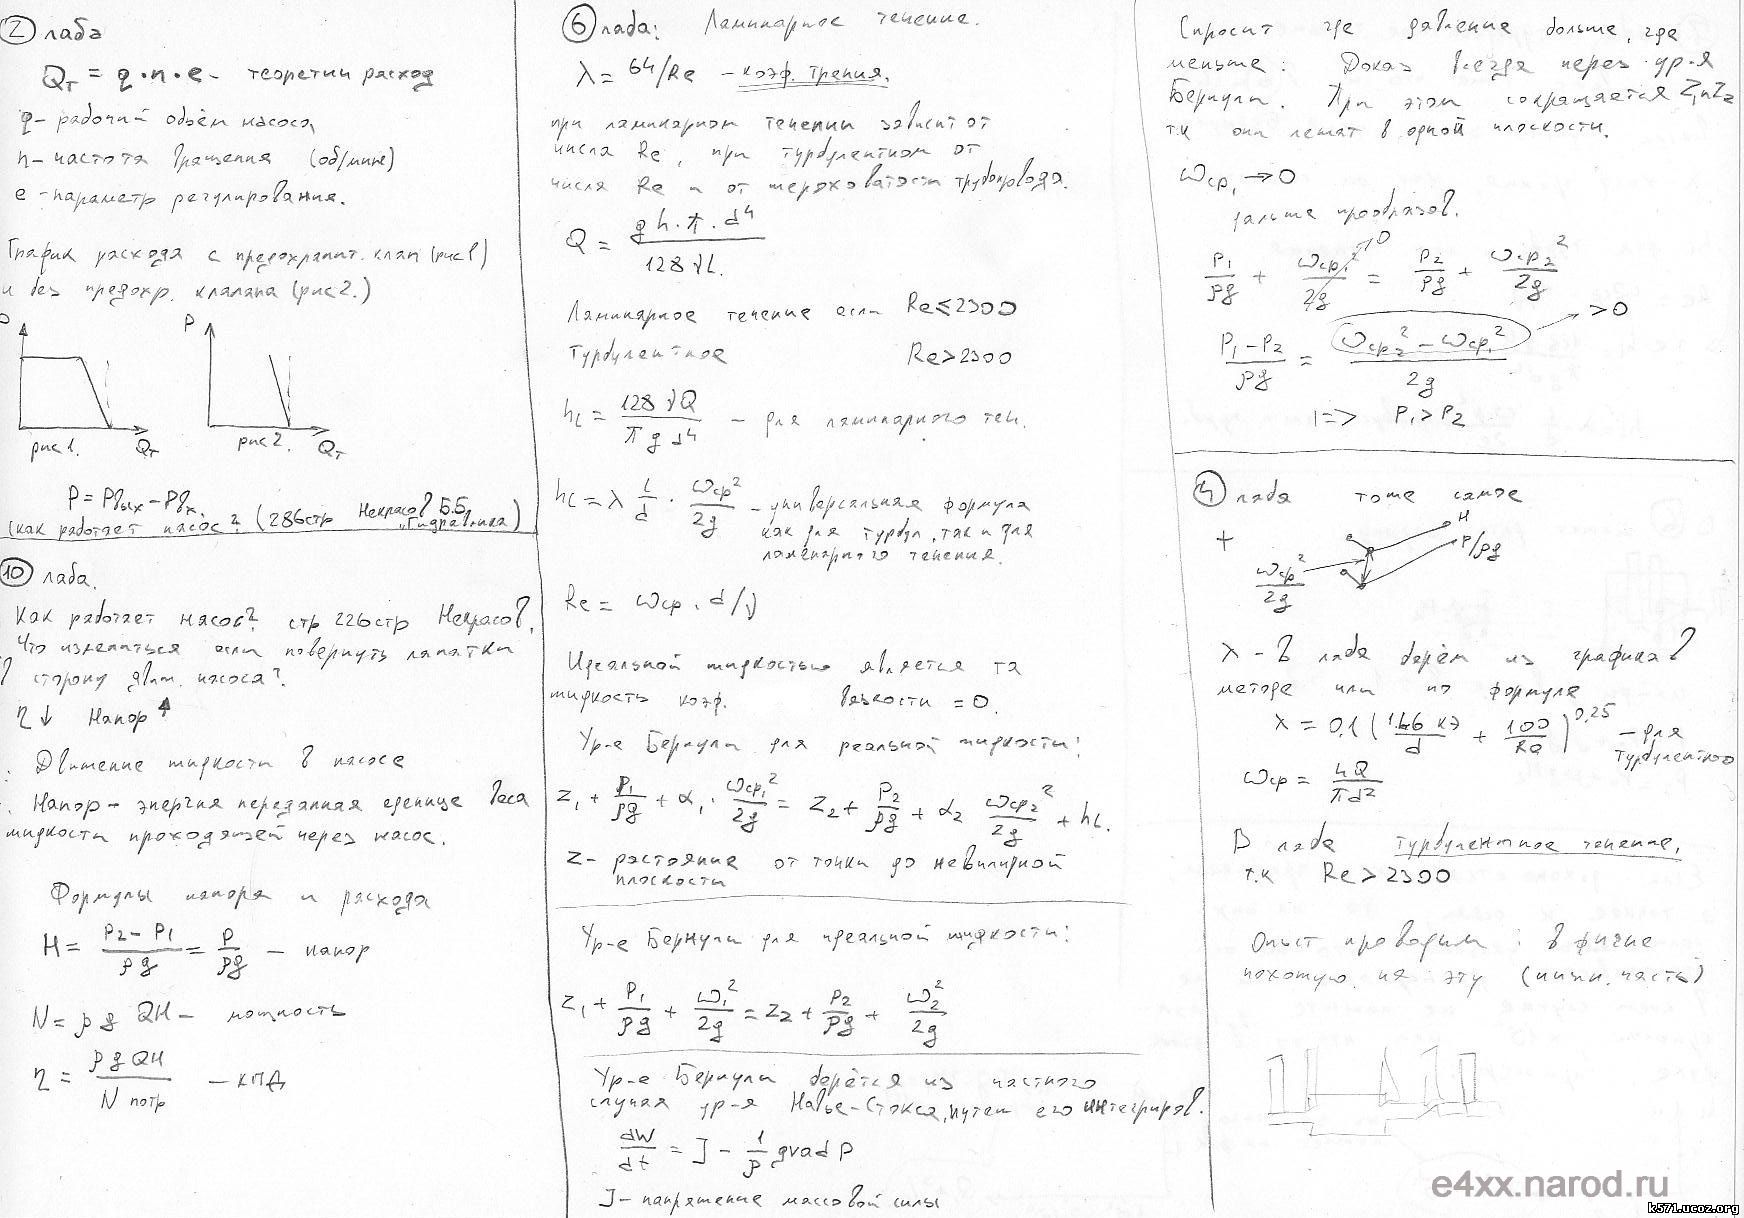 2 лаба
Qт = q·n·e - теоретич расход
q - рабочий объём насоса
n - частота вращения (об/мине)
e - параметр регулирования.
График расхода с предохранит. клап (рис1)
и без предохр. клапана (рис2.)
P
рис1. Qт
рис2. Qт
P = Pвых - Pвх.
(как работает насос? (286стр Некрасов Б.Б. "Гидравлика")
10 лаба.
Как работает насос? стр 226стр Некрасов,
Что изменится если повернуть лапатки
в сторону движ. насоса?
η↓ Напор↑
Движение жидкости в насосе
Напор - энергия переданная еденице веса
жидкости проходящей через насос.
Формулы напора и расхода
H = (P2 - P1)/ρg = P/ρg - напор
N = ρg QH - мощность
η = ρgQH/N потр - КПД
6 лаба: Ламинарное течение.
λ = 64/Re - коэф. трения.
при ламинарном течении зависит от
числа Re, при турбулентном от
числа Re и от шероховатости трубопровода.
Q = gh·π·d⁴/128νL.
Ламинарное течение если Re≤2300
Турбулентное Re>2300
hL = 128νQ/πgd⁴ - для ламинарного теч.
hL = λ L/d · ωср²/2g - универсальная формула
как для турбул, так и для
ламенарного течения.
Re = ωср·d/ν
Идеальной жидкостью является та
жидкость коэф. вязкости = 0.
Ур-е Бернули для реальной жидкости:
z1 + P1/ρg + α1·ωср1²/2g = z2 + P2/ρg + α2 ωср2²/2g + hL.
z - растояние от точки до невилидной
плоскости
Ур-е Бернули для идеальной жидкости:
z1 + P1/ρg + ω1²/2g = z2 + P2/ρg + ω2²/2g
Ур-е Бернули берётся из частного
случая ур-я Навье-Стокса, путем его интегриров.
dW/dt = J - 1/ρ grad P
J - напряжение массовой силы
Спросит где давление больше, где
меньше: Доказ всегда через ур-я
Бернули. При этом сокращается Z1 и Z2
т.к они лежат в одной плоскости.
ωср1 → 0
дальше преобразов.
P1/ρg + ωср1²/2g → 0 = P2/ρg + ωср2²/2g
(P1 - P2)/ρg = (ωср2² - ωср1²)/2g > 0
1 => P1 > P2
4 лаба тоже самое
+
H
P/ρg
ωср²/2g
λ - в лабе берём из графика в
методе или по формуле
λ = 0,1 (1.46 кэ/d + 100/Re)^0,25 - для
турбулентного
ωср = 4Q/πd²
В лабе турбулентное течение,
т.к Re > 2300
Опыт проводим: в фигне
похожую на эту (нижн. часть)
e4xx.narod.ru
k571.ucoz.org